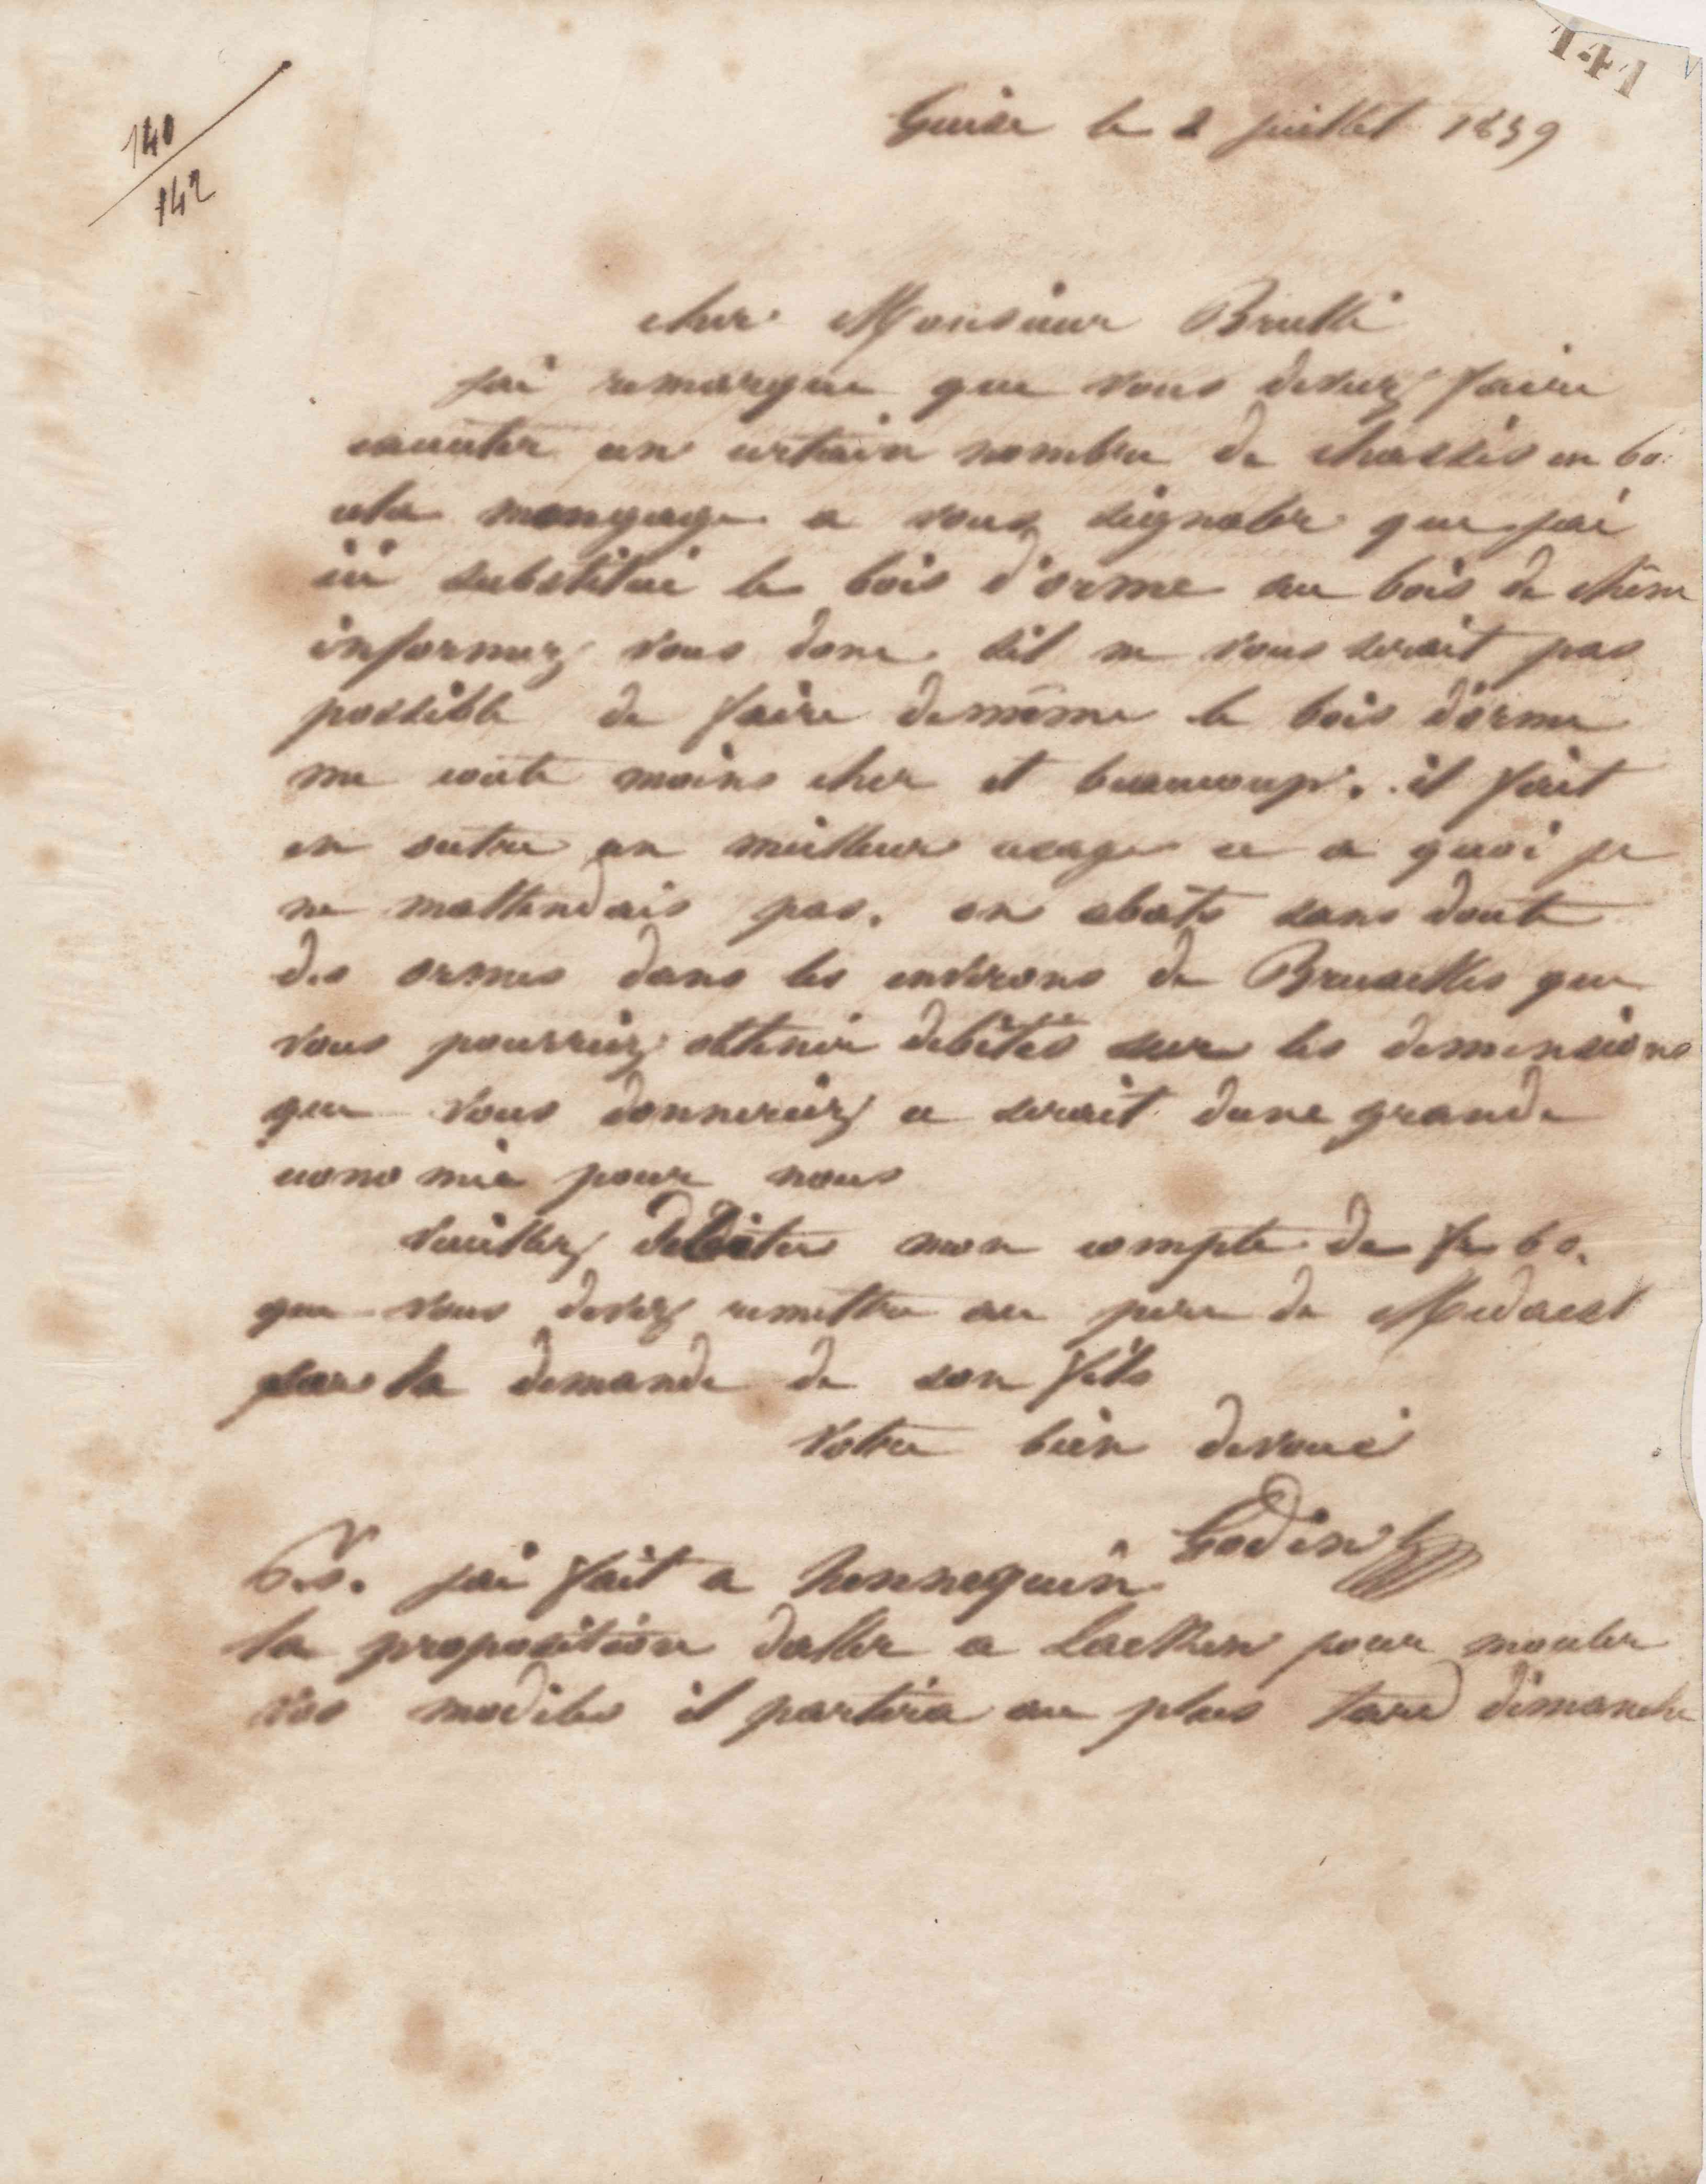 141
140
142
Guise le 2 juillet 1859
cher Monsieur Brullé
jai remarque que vous devez faire
executer un certain nombre de chassis en boi
cela mengage a vous signaler que jai
ici substitué le bois d'orme au bois de chêne
informez vous donc sil ne vous serait pas
possible de faire demême le bois d'orme
me coute moins cher et beaucoup. il fait
en outre un meilleur usage ce a quoi je
ne mattendais pas. on abats sans doute
des ormes dans les environs de Bruxelles que
vous pourriez obtenir debités sur les demensions
que vous donneriez ce serait dune grande
economie pour nous
Veuillez debiter mon compte de fr 60.
que vous devez remettre au pere de
sur la demande de son fils
Votre bien devoué
Godin
P.S. jai fait a hennequin
la proposition daller a Laeken pour mouler
vos modeles il partira au plus tard dimanche